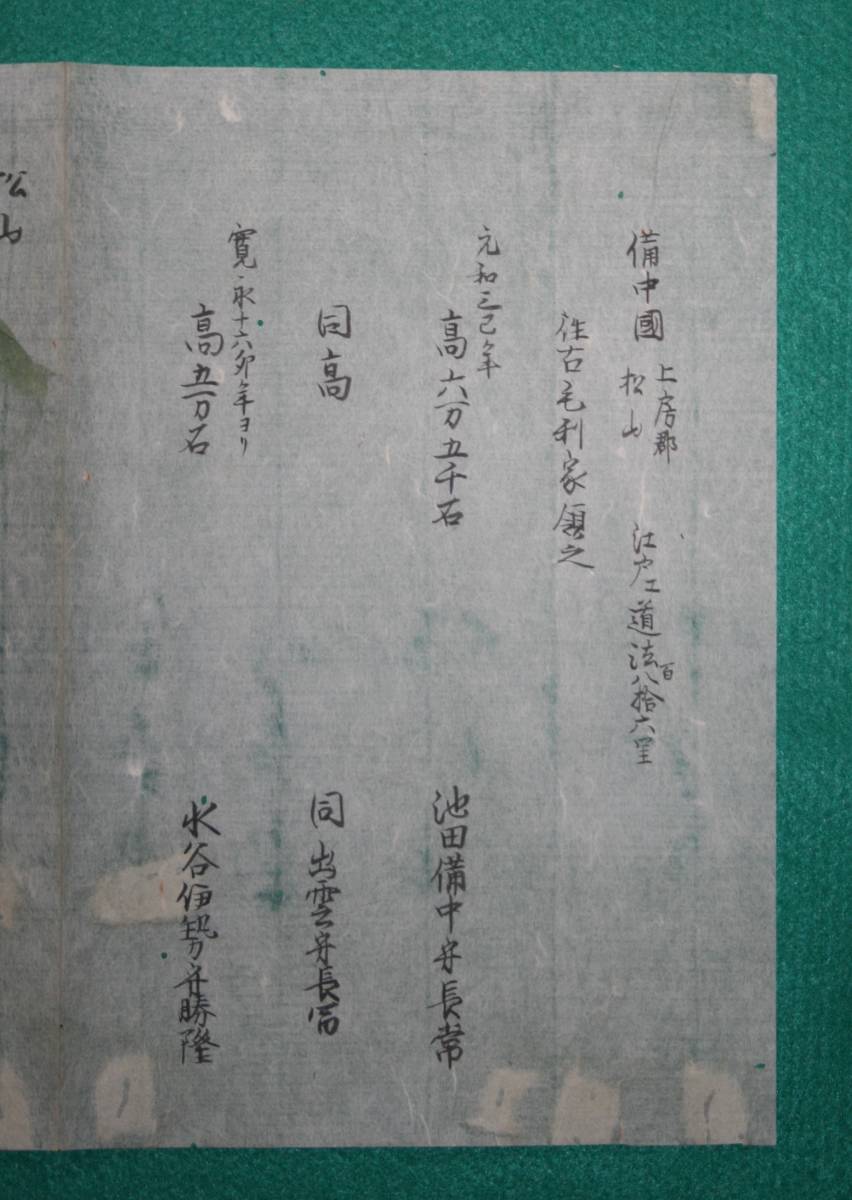 備中國 上房郡 松山 江戸エ道法百八拾六里
往古毛利家領之
元和三巳年
高六万五千石 池田備中守長常
同高 同出雲守長
寛永十六卯年ヨリ
高五万石 水谷伊勢守勝隆
松山